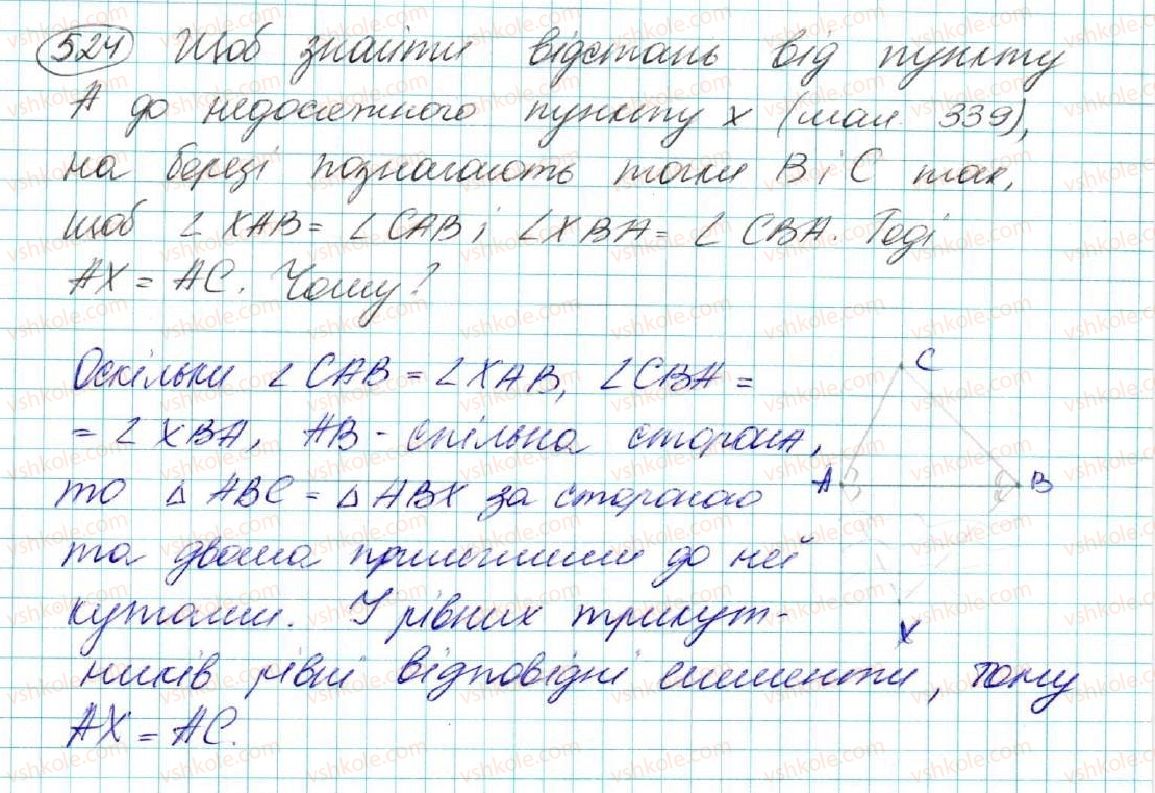 524 Щоб знайти відстань від пункту
А до недосяжного пункту х (мал 339),
на березі позначають точки В і С так,
щоб ∠ХАВ = ∠САВ і ∠ХВА = ∠СВА. Тоді
АХ = АС. Чому?
Оскільки ∠САВ = ∠ХАВ, ∠СВА =
= ∠ХВА, АВ - спільна сторона,
то △АВС = △АВХ за стороною
та двома прилеглими до неї
кутами. У рівних трикут-
ників рівні відповідні елементи, тому
АХ = АС.
С
А
В
Х
vshkole.com